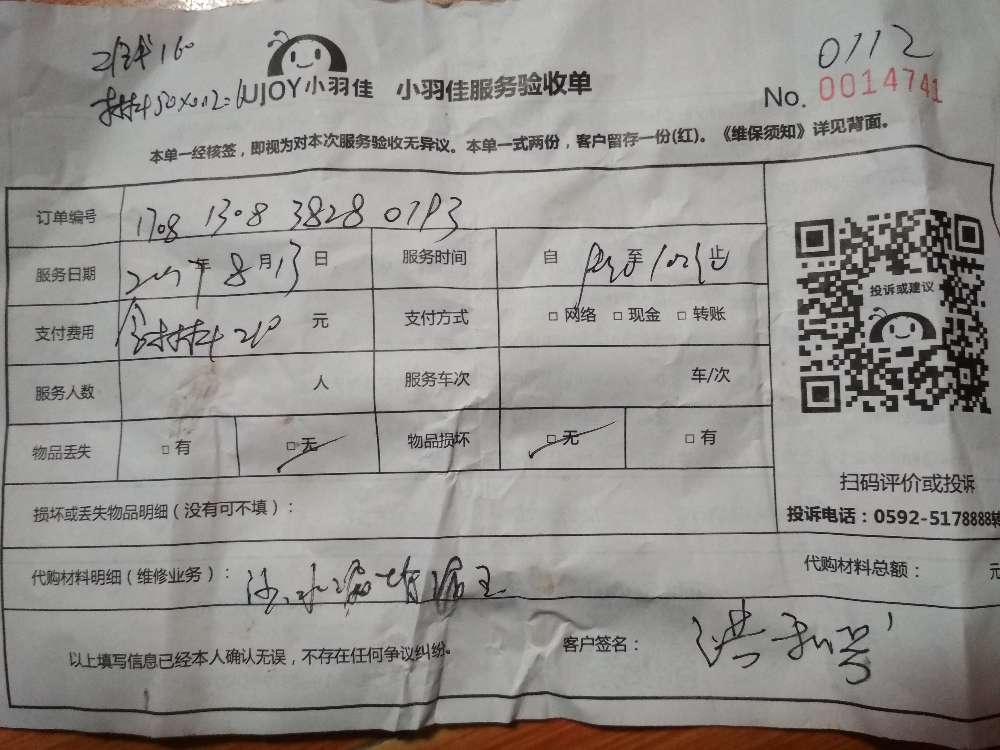 160
0112
UJOY小羽佳 小羽佳服务验收单
No. 0014741
本单一经核签，即视为对本次服务验收无异议。本单一式两份，客户留存一份(红)。《维保须知》详见背面。
订单编号 1708 1308 3828 0793
服务日期 2017年8月13日 服务时间 自 至 止
支付费用 含材料210 元 支付方式 □网络 □现金 □转账
服务人数 人 服务车次 车/次
物品丢失 □有 □无 物品损坏 □无 □有
投诉或建议
扫码评价或投诉
投诉电话：0592-5178888转
损坏或丢失物品明细（没有可不填）：
代购材料明细（维修业务）： 代购材料总额： 元
以上填写信息已经本人确认无误，不存在任何争议纠纷。 客户签名：